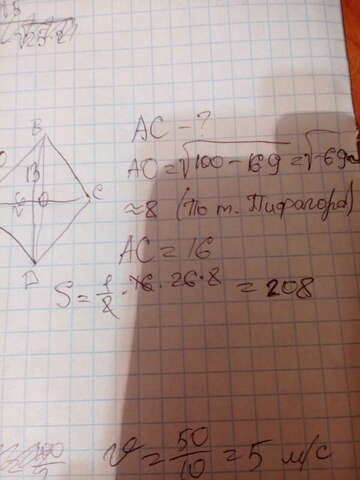 B
13
O
C
D
AC - ?
AO = √100 - 169 = √-69 ≈
≈ 8 (По т. Пифагора)
AC = 16
S = 1/2 · 16 · 26 · 8 = 208
ϑ = 50/10 = 5 м/с